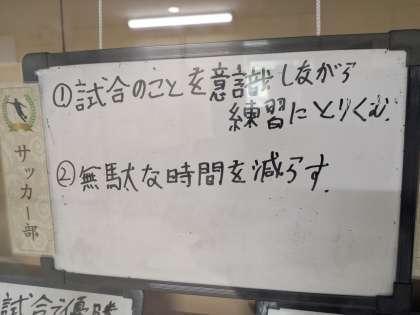 ①試合のことを意識しながら
練習にとりくむ.
②無駄な時間を減らす.
サッカー部
試合で優勝